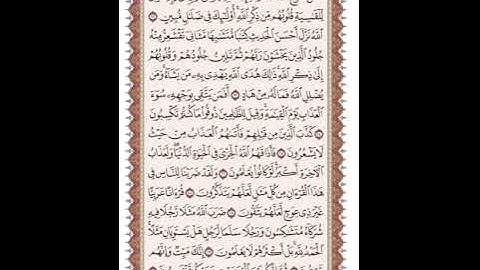 لِّلْقَٰسِيَةِ قُلُوبُهُم مِّن ذِكْرِ ٱللَّهِۚ أُوْلَٰٓئِكَ فِي ضَلَٰلٖ مُّبِينٍ ٢٢
ٱللَّهُ نَزَّلَ أَحْسَنَ ٱلْحَدِيثِ كِتَٰبٗا مُّتَشَٰبِهٗا مَّثَانِيَ تَقْشَعِرُّ مِنْهُ
جُلُودُ ٱلَّذِينَ يَخْشَوْنَ رَبَّهُمْ ثُمَّ تَلِينُ جُلُودُهُمْ وَقُلُوبُهُمْ
إِلَىٰ ذِكْرِ ٱللَّهِۚ ذَٰلِكَ هُدَى ٱللَّهِ يَهْدِي بِهِۦ مَن يَشَآءُۚ وَمَن
يُضْلِلِ ٱللَّهُ فَمَا لَهُۥ مِنْ هَادٍ ٢٣ أَفَمَن يَتَّقِي بِوَجْهِهِۦ سُوٓءَ
ٱلْعَذَابِ يَوْمَ ٱلْقِيَٰمَةِۚ وَقِيلَ لِلظَّٰلِمِينَ ذُوقُواْ مَا كُنتُمْ تَكْسِبُونَ
٢٤ كَذَّبَ ٱلَّذِينَ مِن قَبْلِهِمْ فَأَتَىٰهُمُ ٱلْعَذَابُ مِنْ حَيْثُ
لَا يَشْعُرُونَ ٢٥ فَأَذَاقَهُمُ ٱللَّهُ ٱلْخِزْيَ فِي ٱلْحَيَوٰةِ ٱلدُّنْيَاۖ وَلَعَذَابُ
ٱلْأٓخِرَةِ أَكْبَرُۚ لَوْ كَانُواْ يَعْلَمُونَ ٢٦ وَلَقَدْ ضَرَبْنَا لِلنَّاسِ فِي
هَٰذَا ٱلْقُرْءَانِ مِن كُلِّ مَثَلٖ لَّعَلَّهُمْ يَتَذَكَّرُونَ ٢٧ قُرْءَانًا عَرَبِيًّا
غَيْرَ ذِي عِوَجٖ لَّعَلَّهُمْ يَتَّقُونَ ٢٨ ضَرَبَ ٱللَّهُ مَثَلٗا رَّجُلٗا فِيهِ
شُرَكَآءُ مُتَشَٰكِسُونَ وَرَجُلٗا سَلَمٗا لِّرَجُلٍ هَلْ يَسْتَوِيَانِ مَثَلًاۚ
ٱلْحَمْدُ لِلَّهِۚ بَلْ أَكْثَرُهُمْ لَا يَعْلَمُونَ ٢٩ إِنَّكَ مَيِّتٞ وَإِنَّهُم